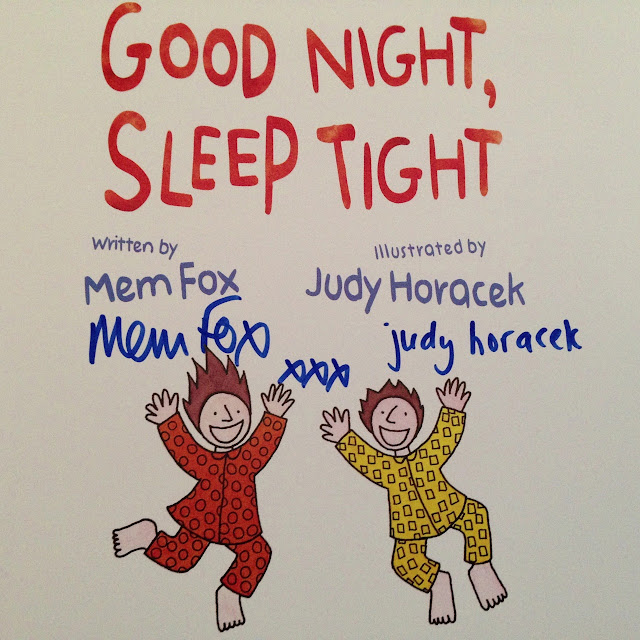 GOOD NIGHT,
SLEEP TIGHT
Written by
Mem Fox
Illustrated by
Judy Horacek
Mem Fox
xxx
judy horacek